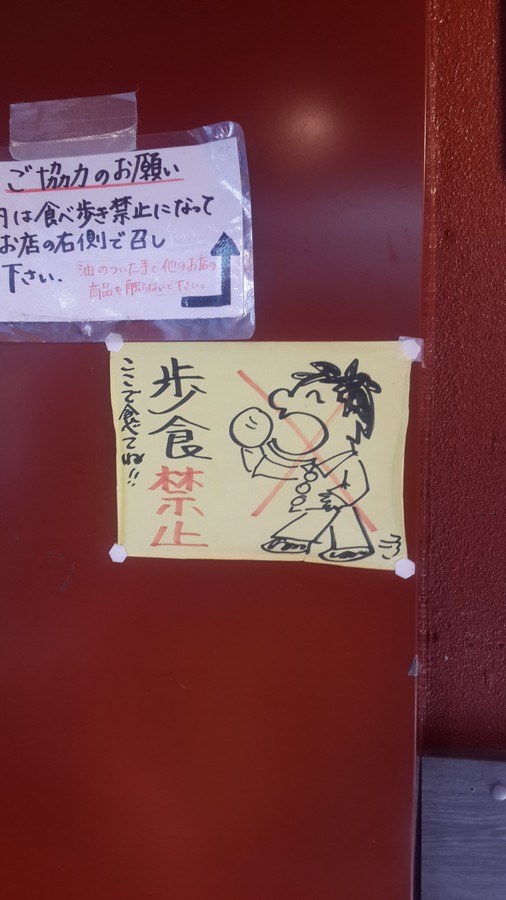 ご協力のお願い
は食べ歩き禁止になって
お店の右側で召し
下さい。
油のついた手で他のお店の
商品を触らないで下さい。
歩食禁止
ここで食べてね!!